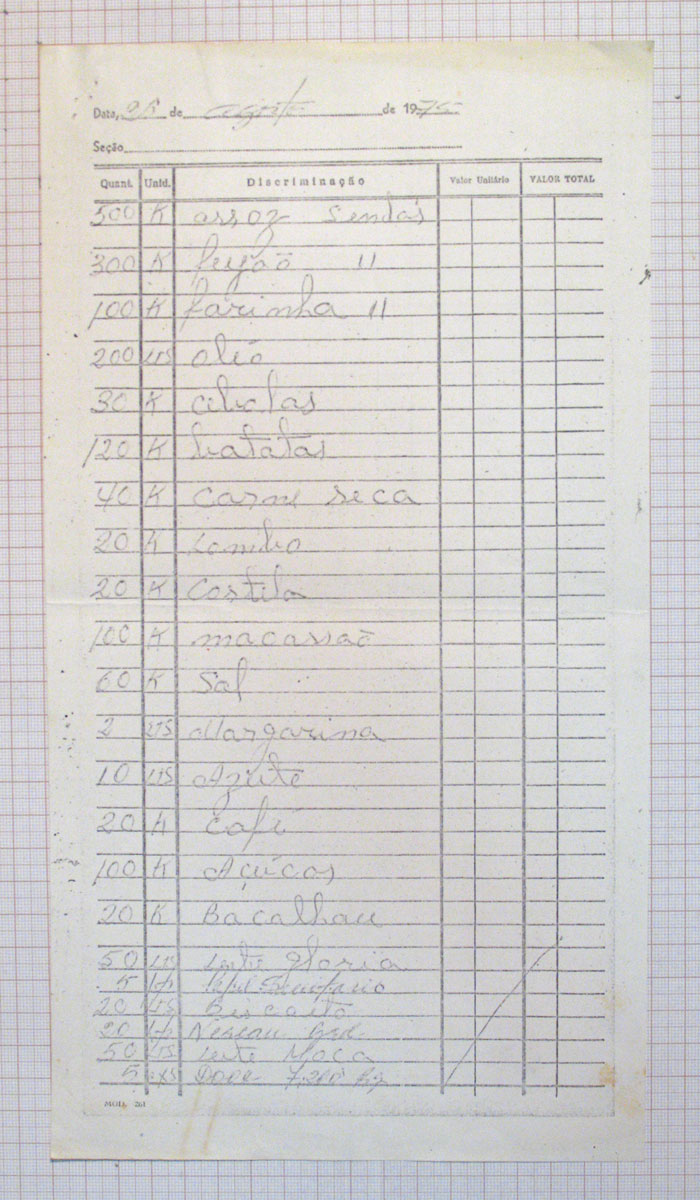 Data, 26 de agosto de 1975
Seção
Quant. Unid. Discriminação Valor Unitário VALOR TOTAL
500 K arroz Sendas
300 K feijão 11
100 K farinha 11
200 LTS oleo
30 K cebolas
120 K batatas
40 K carne seca
20 K Lombo
20 K Costela
100 K macarrão
60 K Sal
2 LTS Margarina
10 LTS Azeite
20 K Café
100 K Açúcar
20 K Bacalhau
50 LTS Leite Gloria
5 Papel
20 LTS Biscoito
20 Nescau
50 LTS Leite Moça
5 7,200 kg
MOD. 261